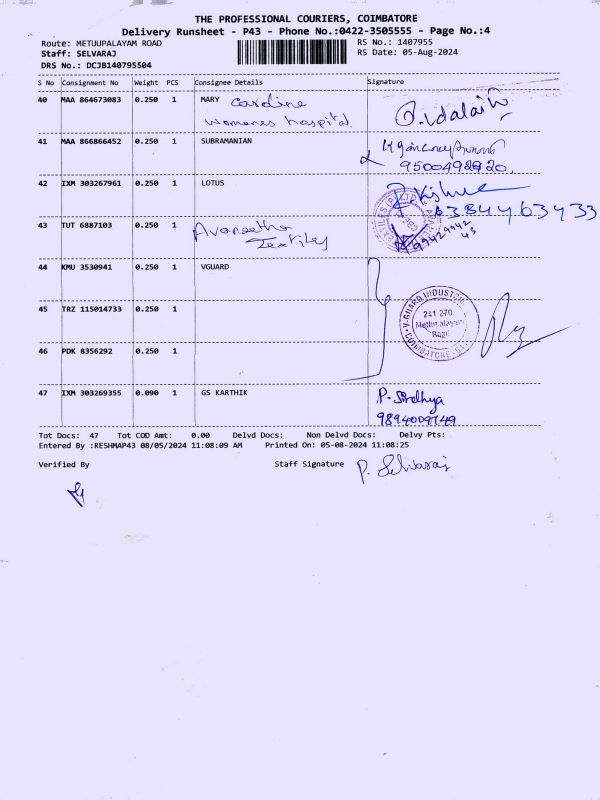 THE PROFESSIONAL COURIERS, COIMBATORE
Delivery Runsheet - P43 - Phone No.:0422-3505555 - Page No.:4
Route: METUUPALAYAM ROAD RS No.: 1407955
Staff: SELVARAJ RS Date: 05-Aug-2024
DRS No.: DCJB140795504
S No Consignment No Weight PCS Consignee Details Signature
40 MAA 864673083 0.250 1 MARY Caroline
womenes hospital
41 MAA 866866452 0.250 1 SUBRAMANIAN
9500492920.
42 IXM 303267961 0.250 1 LOTUS
43 TUT 6887103 0.250 1 Avaneetha
Textiles
44 KMU 3530941 0.250 1 VGUARD
V-GUARD INDUSTRI
241 270
Mettupalayam
Road
COIMBATORE
45 TRZ 115014733 0.250 1
46 PDK 8356292 0.250 1
47 IXM 303269355 0.090 1 GS KARTHIK P. Sindhya
9894009749
Tot Docs: 47 Tot COD Amt: 0.00 Delvd Docs: Non Delvd Docs: Delvy Pts:
Entered By :RESHMAP43 08/05/2024 11:08:09 AM Printed On: 05-08-2024 11:08:25
Verified By Staff Signature P. Selvaraj